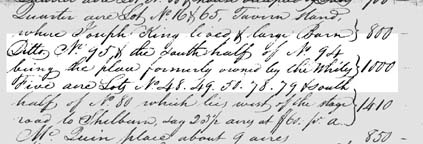 Quarter acre Lots No. 16 & 65, Tavern Stand
where Joseph King lived & large Barn } 800
Ditto, No. 95 & the South half of No. 94
being the place formerly owned by the Whites } 1000
Five acre Lots No. 48. 49. 50. 78. 79 & South
half of No. 80 which lies west of the stage } 1410
road to Shelburn, say 23½ acres at $60. pr. a.
Mc Quin place about 9 acres 850 -